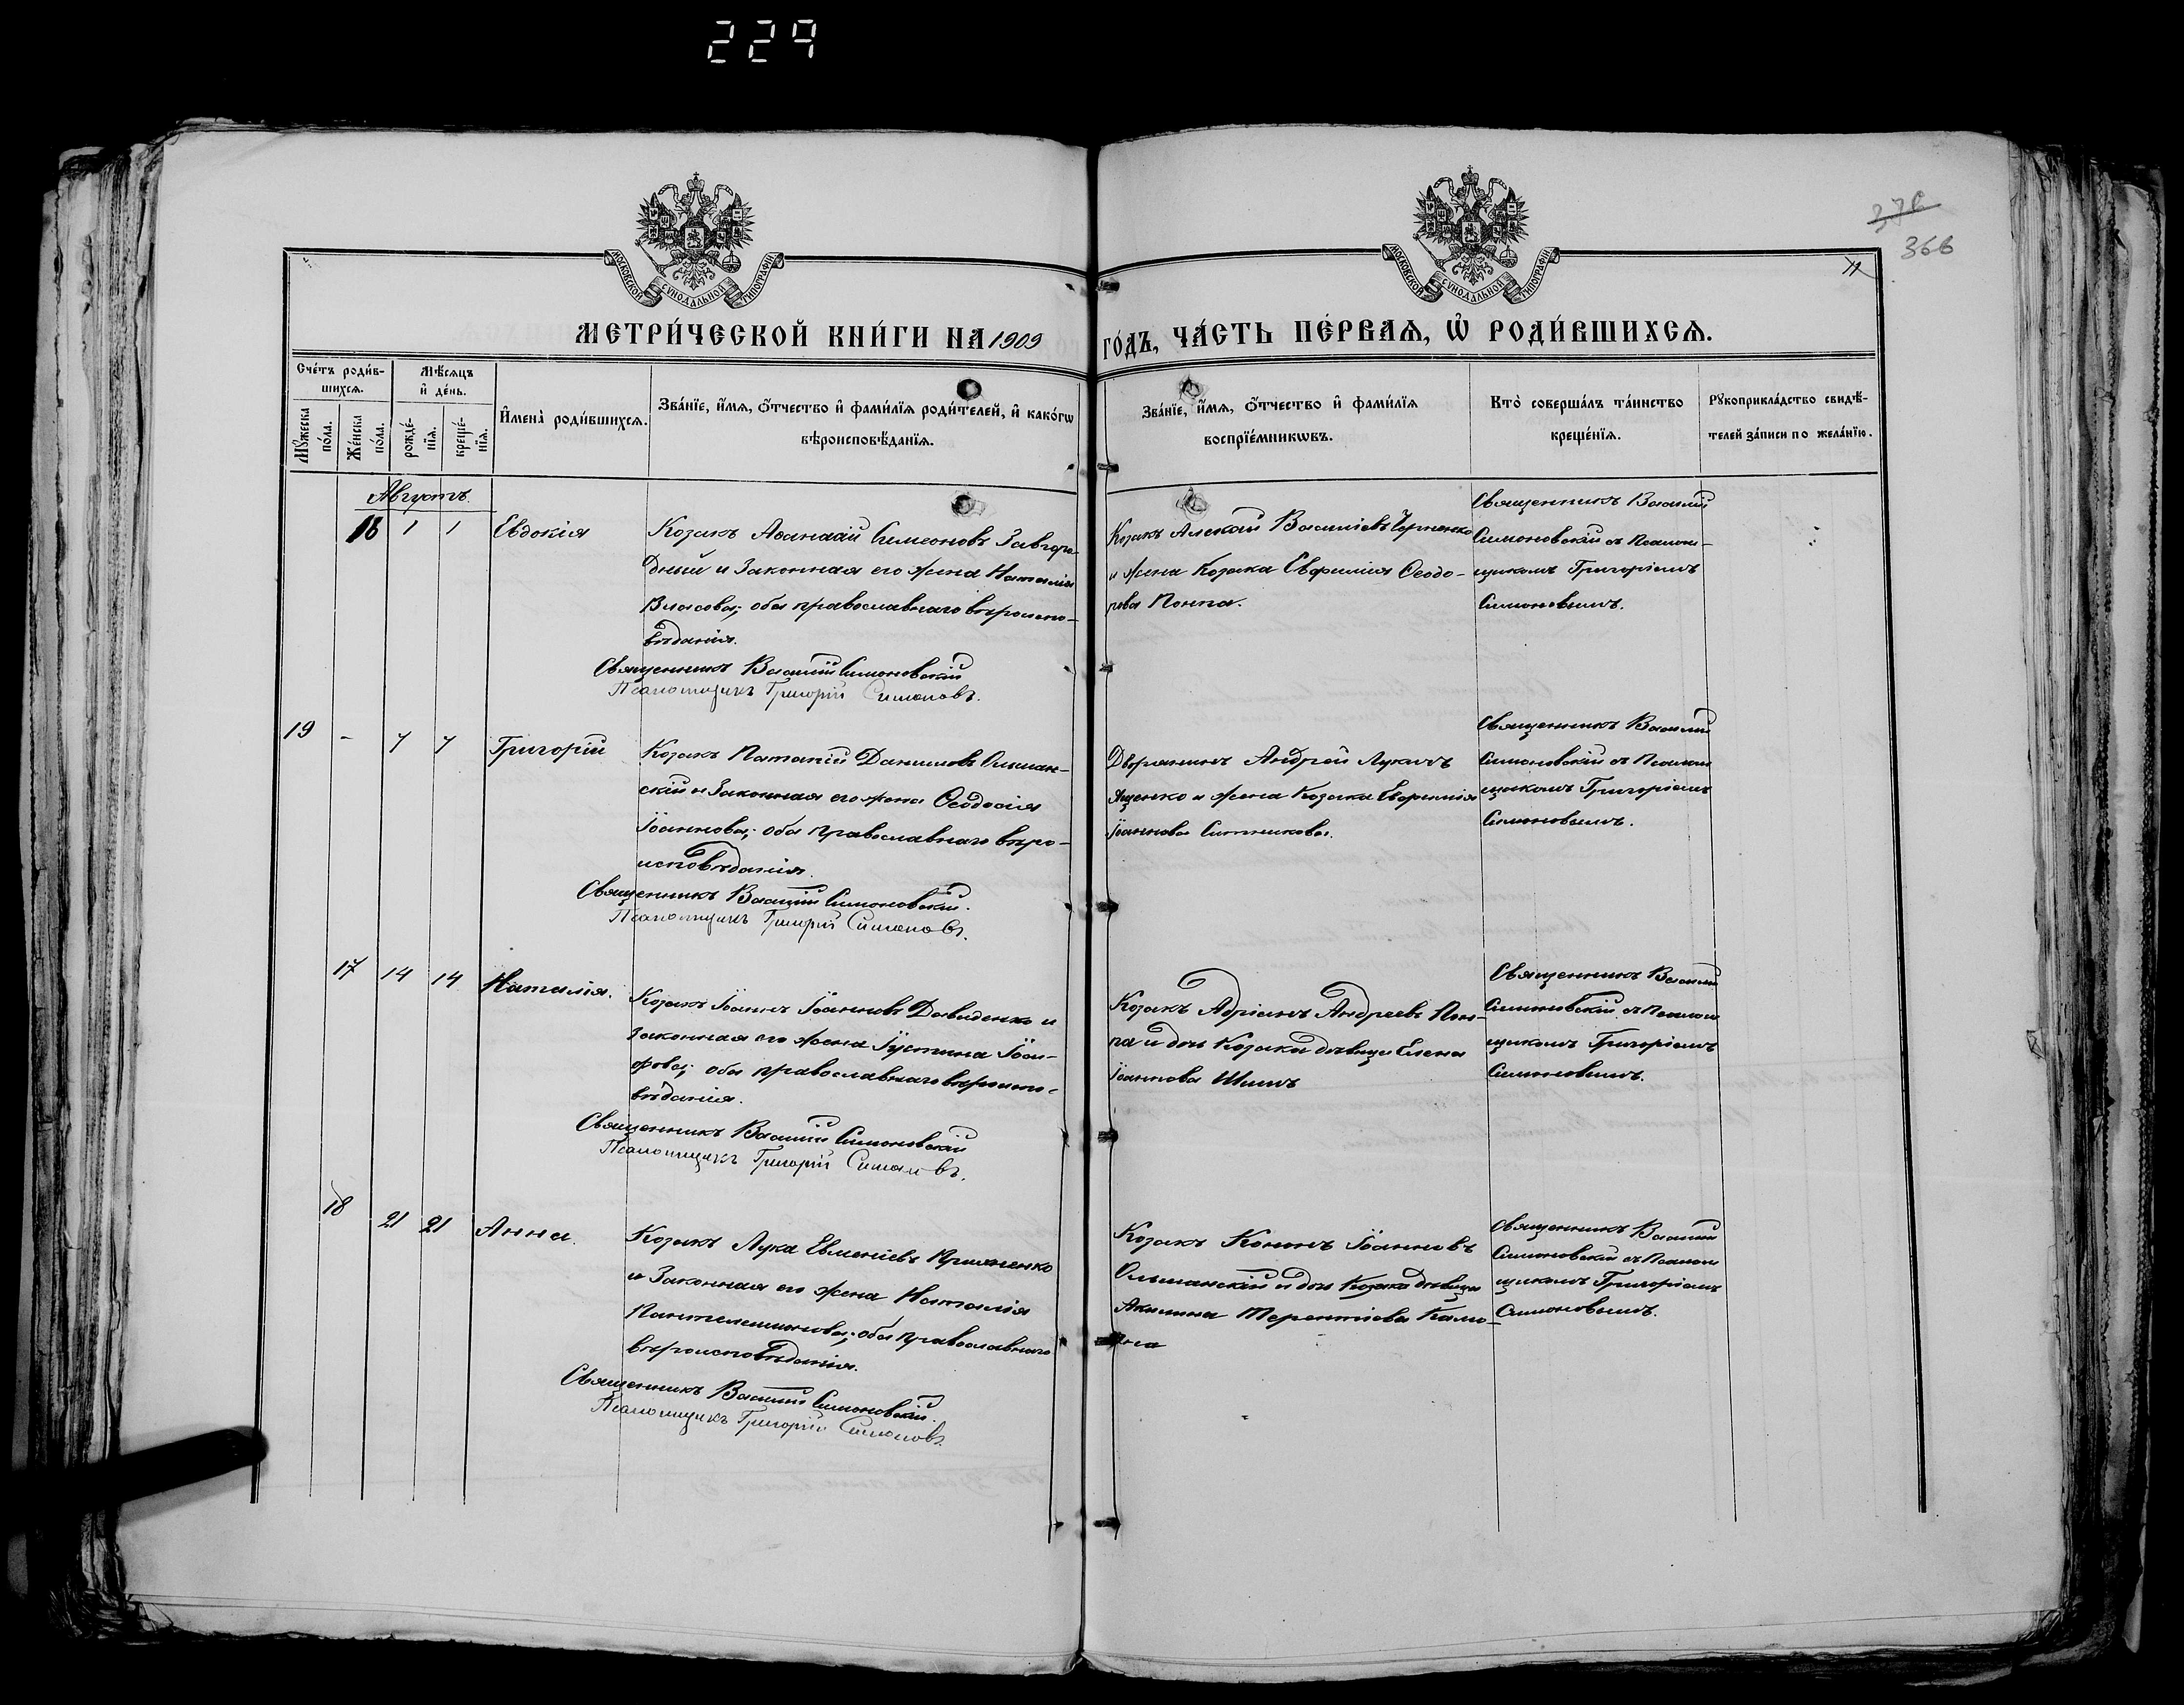 229
370
366
11
МОСКОВСКОЙ СѴНОДАЛЬНОЙ ТИПОГРАФІИ
МОСКОВСКОЙ СѴНОДАЛЬНОЙ ТИПОГРАФІИ
МЕТРИ́ЧЕСКОЙ КНИ́ГИ НА 1909 ГО́ДЪ, ЧА́СТЬ ПЕ́РВАѦ, Ѡ҆ РОДИ́ВШИХСѦ.
Сче́тъ роди́в-
шихсѧ.
Мꙋ́жеска по́ла.
Же́нска по́ла.
Мѣ́сѧцъ и҆ де́нь.
рожде́-нїѧ.
креще́-нїѧ.
И҆мена̀ роди́вшихсѧ.
Зва́нїе, и҆́мѧ, ѻ҆́тчество и҆ фами́лїѧ роди́телей, и҆ како́гѡ
вѣроисповѣ́данїѧ.
Зва́нїе, и҆́мѧ, ѻ҆́тчество и҆ фами́лїѧ
воспрїе́мникѡвъ.
Кто̀ соверша́лъ та́инство
креще́нїѧ.
Рꙋкоприкла́дство свидѣ́-
телей за́писи по жела́нїю.
Августъ.
16 1 1 Евдокія
Козакъ Аѳанасій Симеоновъ Завгоро-
дный и законная его жена Наталія
Власова; оба православнаго вѣроиспо-
вѣданія.
Священникъ Василій Симоновскій
Псаломщикъ Григорій Симоновъ.
Козакъ Алексій Василіевъ Черненко
и жена Козака Евфимія Ѳеодо-
рова Понпа.
Священникъ Василій
Симоновскій съ Псалом-
щикомъ Григоріемъ
Симоновымъ.
19 - 7 7 Григорій
Козакъ Потапій Даниловъ Ольшан-
скій и законная его жена Ѳеодосія
Іоаннова; оба православнаго вѣро-
исповѣданія.
Священникъ Василій Симоновскій.
Псаломщикъ Григорій Симоновъ.
Дворянинъ Андрей Лукичъ
Ященко и жена Козака Евфимія
Іоаннова Ситникова.
Священникъ Василій
Симоновскій съ Псалом
щикомъ Григоріемъ
Симоновымъ.
17 14 14 Наталія.
Козакъ Іоаннъ Іоанновъ Давиденко и
законная его жена Іустина Іоси-
фова; оба православнаго вѣроиспо-
вѣданія.
Священникъ Василій Симоновскій
Псаломщикъ Григорій Симоновъ.
Козакъ Адріанъ Андреевъ Пон-
па и дочь Козака дѣвица Елена
Іоаннова Шишъ
Священникъ Василій
Симоновскій съ Псалом
щикомъ Григоріемъ
Симоновымъ.
18 21 21 Анна.
Козакъ Лука Евменіевъ
и законная его жена Наталія
Пантелеимонова; оба православнаго
вѣроисповѣданія.
Священникъ Василій Симоновскій.
Псаломщикъ Григорій Симоновъ.
Козакъ Кононъ Іоанновъ
Ольшанскій и дочь Козака дѣвица
Акилина Терентіева
Священникъ Василій
Симоновскій съ Псалом
щикомъ Григоріемъ
Симоновымъ.